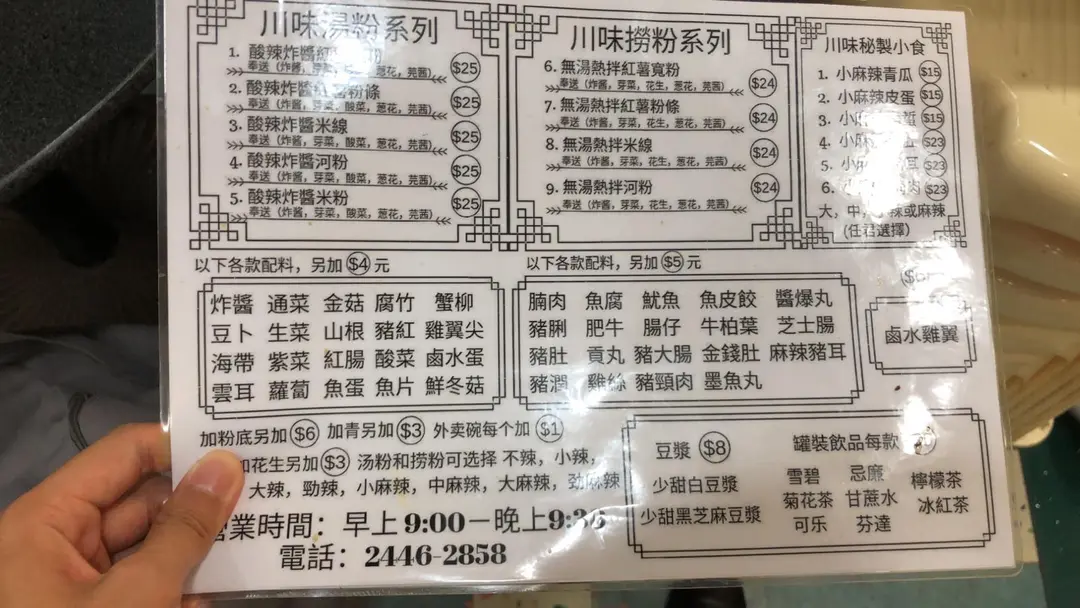 川味湯粉系列
1. 酸辣炸醬紅
奉送（炸酱，芽菜，葱花，芫茜）
$25
2. 酸辣炸醬 粉條
奉送（炸酱，芽菜，酸菜，葱花，芫茜）
$25
3. 酸辣炸醬米線
奉送（炸酱，芽菜，酸菜，葱花，芫茜）
$25
4. 酸辣炸醬河粉
奉送（炸酱，芽菜，酸菜，葱花，芫茜）
$25
5. 酸辣炸醬米粉
奉送（炸酱，芽菜，酸菜，葱花，芫茜）
$25
川味撈粉系列
6. 無湯熱拌紅薯寬粉
奉送（炸酱，芽菜，花生，葱花，芫茜）
$24
7. 無湯熱拌紅薯粉條
奉送（炸酱，芽菜，花生，葱花，芫茜）
$24
8. 無湯熱拌米線
奉送（炸酱，芽菜，花生，葱花，芫茜）
$24
9. 無湯熱拌河粉
奉送（炸酱，芽菜，花生，葱花，芫茜）
$24
川味秘製小食
1. 小麻辣青瓜 $15
2. 小麻辣皮蛋 $15
3. 小 $15
4. 小 $23
5. 小 耳 $23
6. 肉 $23
大，中，辣或麻辣
(任君選擇)
以下各款配料，另加 $4 元
炸醬 通菜 金菇 腐竹 蟹柳
豆卜 生菜 山根 豬紅 雞翼尖
海帶 紫菜 紅腸 酸菜 鹵水蛋
雲耳 蘿蔔 魚蛋 魚片 鮮冬菇
以下各款配料，另加 $5 元
腩肉 魚腐 魷魚 魚皮餃 醬爆丸
豬脷 肥牛 腸仔 牛柏葉 芝士腸
豬肚 貢丸 豬大腸 金錢肚 麻辣豬耳
豬潤 雞絲 豬頸肉 墨魚丸
鹵水雞翼
加粉底另加 $6 加青另加 $3 外卖碗每个加 $1
加花生另加 $3 汤粉和捞粉可选择 不辣，小辣，
大辣，勁辣，小麻辣，中麻辣，大麻辣，劲麻辣
營業時間：早上 9:00－晚上9:3
電話：2446-2858
豆漿 $8
少甜白豆漿
少甜黑芝麻豆漿
罐裝飲品每款
雪碧 忌廉 檸檬茶
菊花茶 甘蔗水 冰紅茶
可乐 芬達